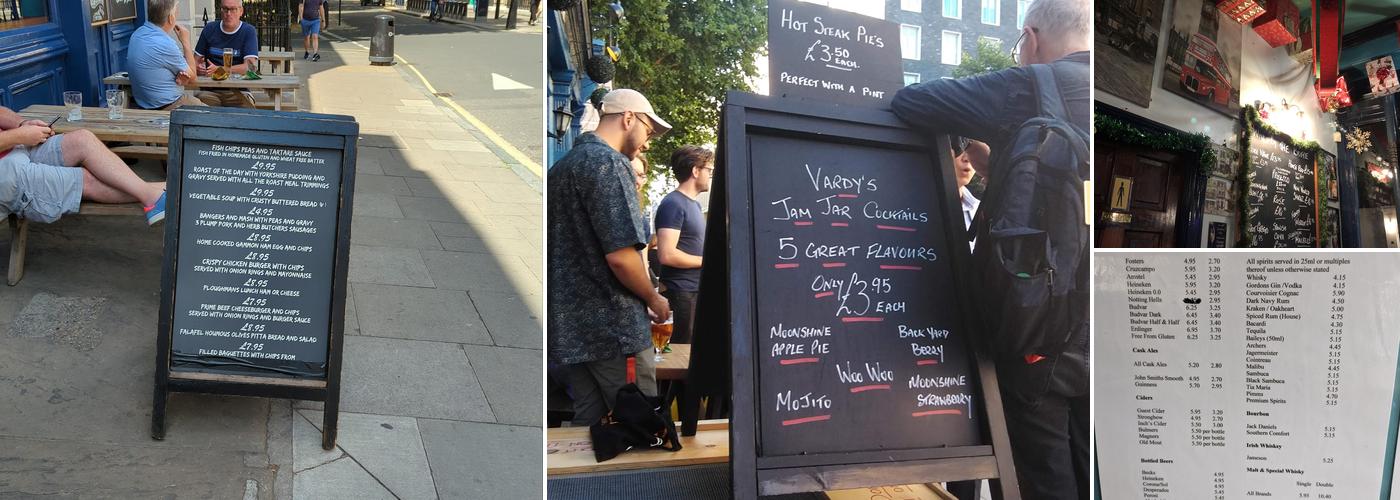 FISH CHIPS PEAS AND TARTARE SAUCE
FISH FRIED IN HOMEMADE GLUTEN AND WHEAT FREE BATTER
£9.95
ROAST OF THE DAY WITH YORKSHIRE PUDDING AND
GRAVY SERVED WITH ALL THE ROAST MEAL TRIMMINGS
£9.95
VEGETABLE SOUP WITH CRUSTY BUTTERED BREAD
£4.95
BANGERS AND MASH WITH PEAS AND GRAVY
3 PLUMP PORK AND HERB BUTCHERS SAUSAGES
£8.95
HOME COOKED GAMMON HAM EGG AND CHIPS
£8.95
CRISPY CHICKEN BURGER WITH CHIPS
SERVED WITH ONION RINGS AND MAYONNAISE
£8.95
PLOUGHMANS LUNCH HAM OR CHEESE
£7.95
PRIME BEEF CHEESEBURGER AND CHIPS
SERVED WITH ONION RINGS AND BURGER SAUCE
£8.95
FALAFEL HOUMOUS OLIVES PITTA BREAD AND SALAD
£7.95
FILLED BAGUETTES WITH CHIPS FROM
HOT STEAK PIE'S
£3.50
EACH.
PERFECT WITH A PINT
VARDY'S
JAM JAR COCKTAILS
5 GREAT FLAVOURS
ONLY £3.95
EACH
MOONSHINE
APPLE PIE
BACK YARD
BERRY
WOO WOO
MOJITO
MOONSHINE
STRAWBERRY
Fosters 4.95 2.70
Cruzcampo 5.95 3.20
Amstel 5.45 2.95
Heineken 5.95 3.20
Heineken 0.0 5.45 2.95
Notting Hells 2.95
Budvar 6.25 3.25
Budvar Dark 6.45 3.40
Budvar Half & Half 6.45 3.40
Erdinger 6.95 3.70
Free From Gluten 6.25 3.25
Cask Ales
All Cask Ales 5.20 2.80
John Smiths Smooth 4.95 2.70
Guinness 5.70 2.95
Ciders
Guest Cider 5.95 3.20
Strongbow 4.95 2.70
Inch's Cider 5.50 3.00
Bulmers 5.50 per bottle
Magners 5.50 per bottle
Old Mout 5.50 per bottle
Bottled Beers
Becks 4.95
Heineken 4.95
Corona/Sol 4.95
Desperados 5.45
Peroni
All spirits served in 25ml or multiples
thereof unless otherwise stated
Whisky 4.15
Gordons Gin /Vodka 4.15
Courvoisier Cognac 5.90
Dark Navy Rum 4.50
Kraken / Oakheart 5.00
Spiced Rum (House) 4.75
Bacardi 4.30
Tequila 5.15
Baileys (50ml) 5.15
Archers 4.45
Jagermeister 5.15
Cointreau 5.15
Malibu 4.45
Sambuca 5.15
Black Sambuca 5.15
Tia Maria 5.15
Pimms 4.70
Premium Spirits 5.15
Bourbon
Jack Daniels 5.15
Southern Comfort 5.15
Irish Whiskey
Jameson 5.25
Malt & Special Whisky
Single Double
All Brands 5.95 10.40